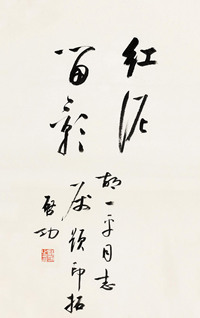 红泥
留影
胡一平同志
属题印拓
启功